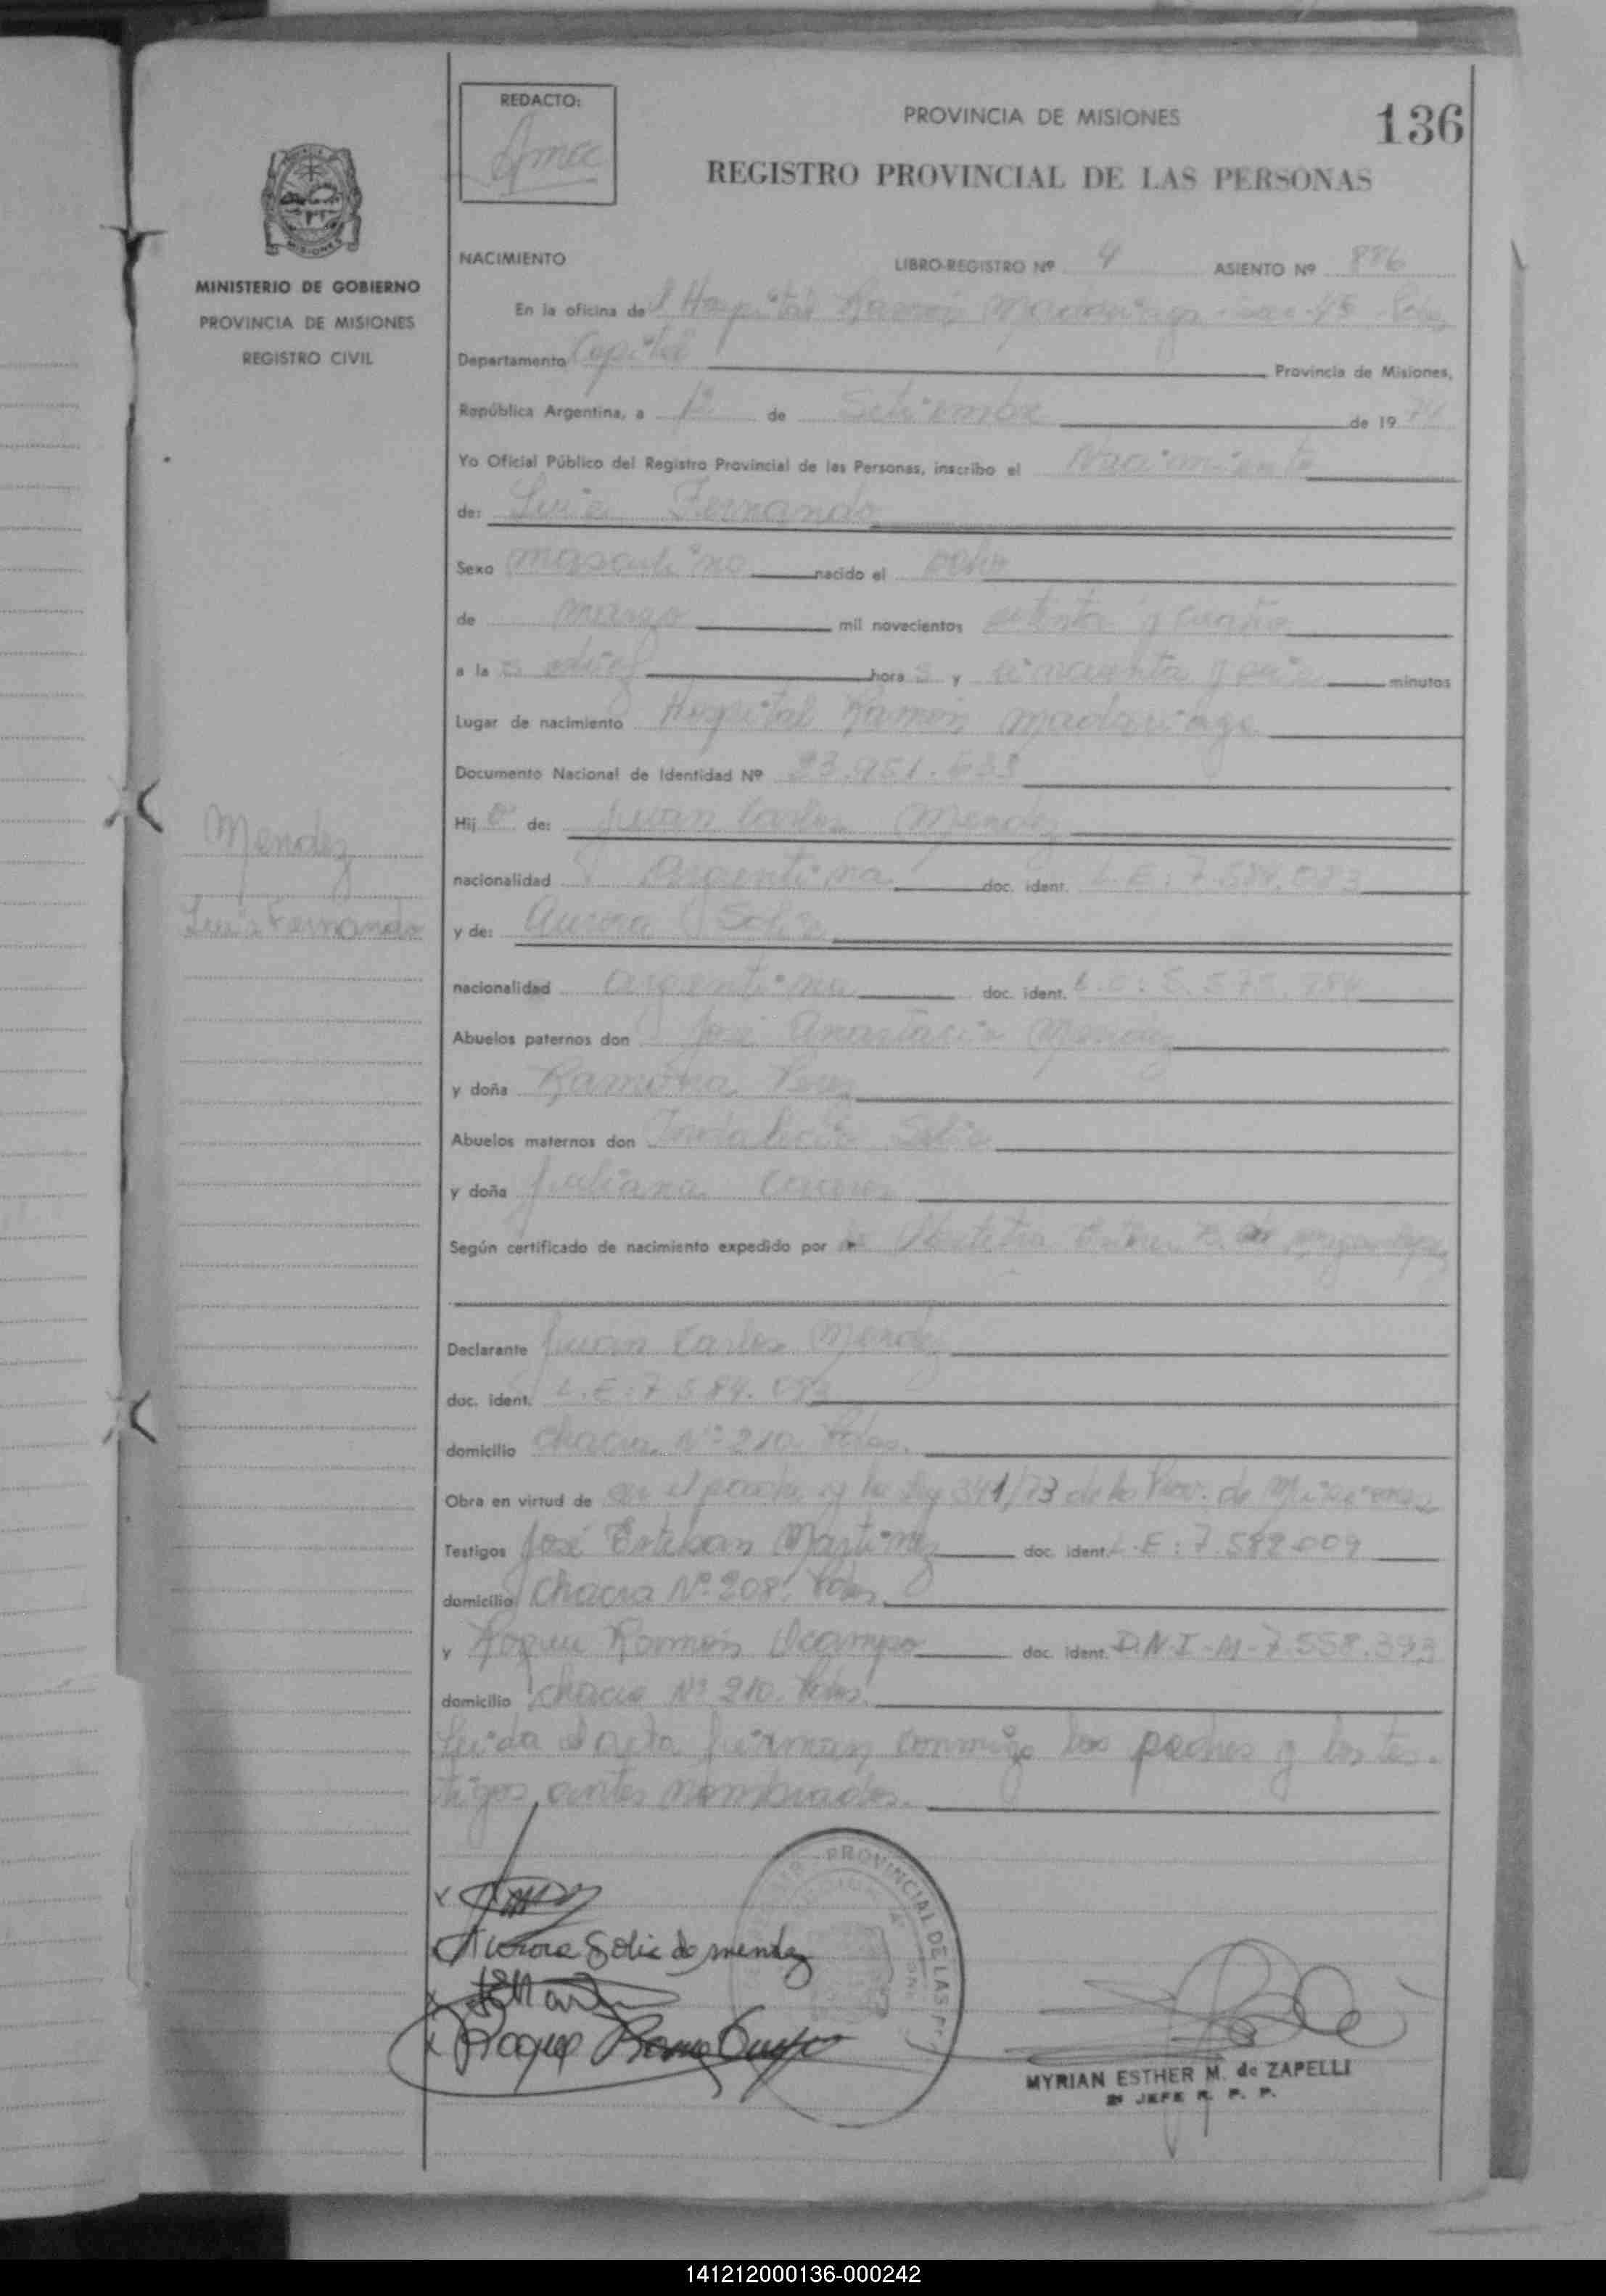 REDACTO:
PROVINCIA DE MISIONES
136
REGISTRO PROVINCIAL DE LAS PERSONAS
MISIONES
MINISTERIO DE GOBIERNO
PROVINCIA DE MISIONES
REGISTRO CIVIL
NACIMIENTO LIBRO-REGISTRO Nº 4 ASIENTO Nº 886
En la oficina del Hospital Ramón Madariaga
Departamento Capital Provincia de Misiones,
República Argentina, a 12 de Setiembre de 19 74
Yo Oficial Público del Registro Provincial de las Personas, inscribo el Nacimiento
de: Luis Fernando
Sexo masculino nacido el ocho
de marzo mil novecientos setenta y cuatro
a la s hora s y cincuenta y seis minutos
Lugar de nacimiento Hospital Ramón Madariaga
Documento Nacional de Identidad Nº
Mendez
Luis Fernando
Hij o de: Juan Carlos Mendez
nacionalidad Argentina doc. ident. L.E: 7.584.093
y de: Aurora Solis
nacionalidad argentina doc. ident.
Abuelos paternos don José Anastacio Mendez
y doña Ramona
Abuelos maternos don Solis
y doña Juliana
Según certificado de nacimiento expedido por
Declarante Juan Carlos Mendez
doc. ident. L.E: 7.584.093
domicilio Chacra Nº 210 Pdas.
Obra en virtud de ser el padre y la ley 341/73 de la Prov. de Misiones
Testigos José Esteban Martinez doc. ident. L.E: 7.582.009
domicilio Chacra Nº 208. Pdas.
y Roque Ramón Ocampo doc. ident. D.N.I-M-7.558.393
domicilio Chacra Nº 210. Pdas.
Leida el acta firman conmigo los padres y los tes-
tigos antes nombrados.
Aurora Solis de mendez
PROVINCIAL DE LAS P
Roque Ramon Ocampo
MYRIAN ESTHER M. de ZAPELLI
2º JEFE R. P. P.
141212000136-000242